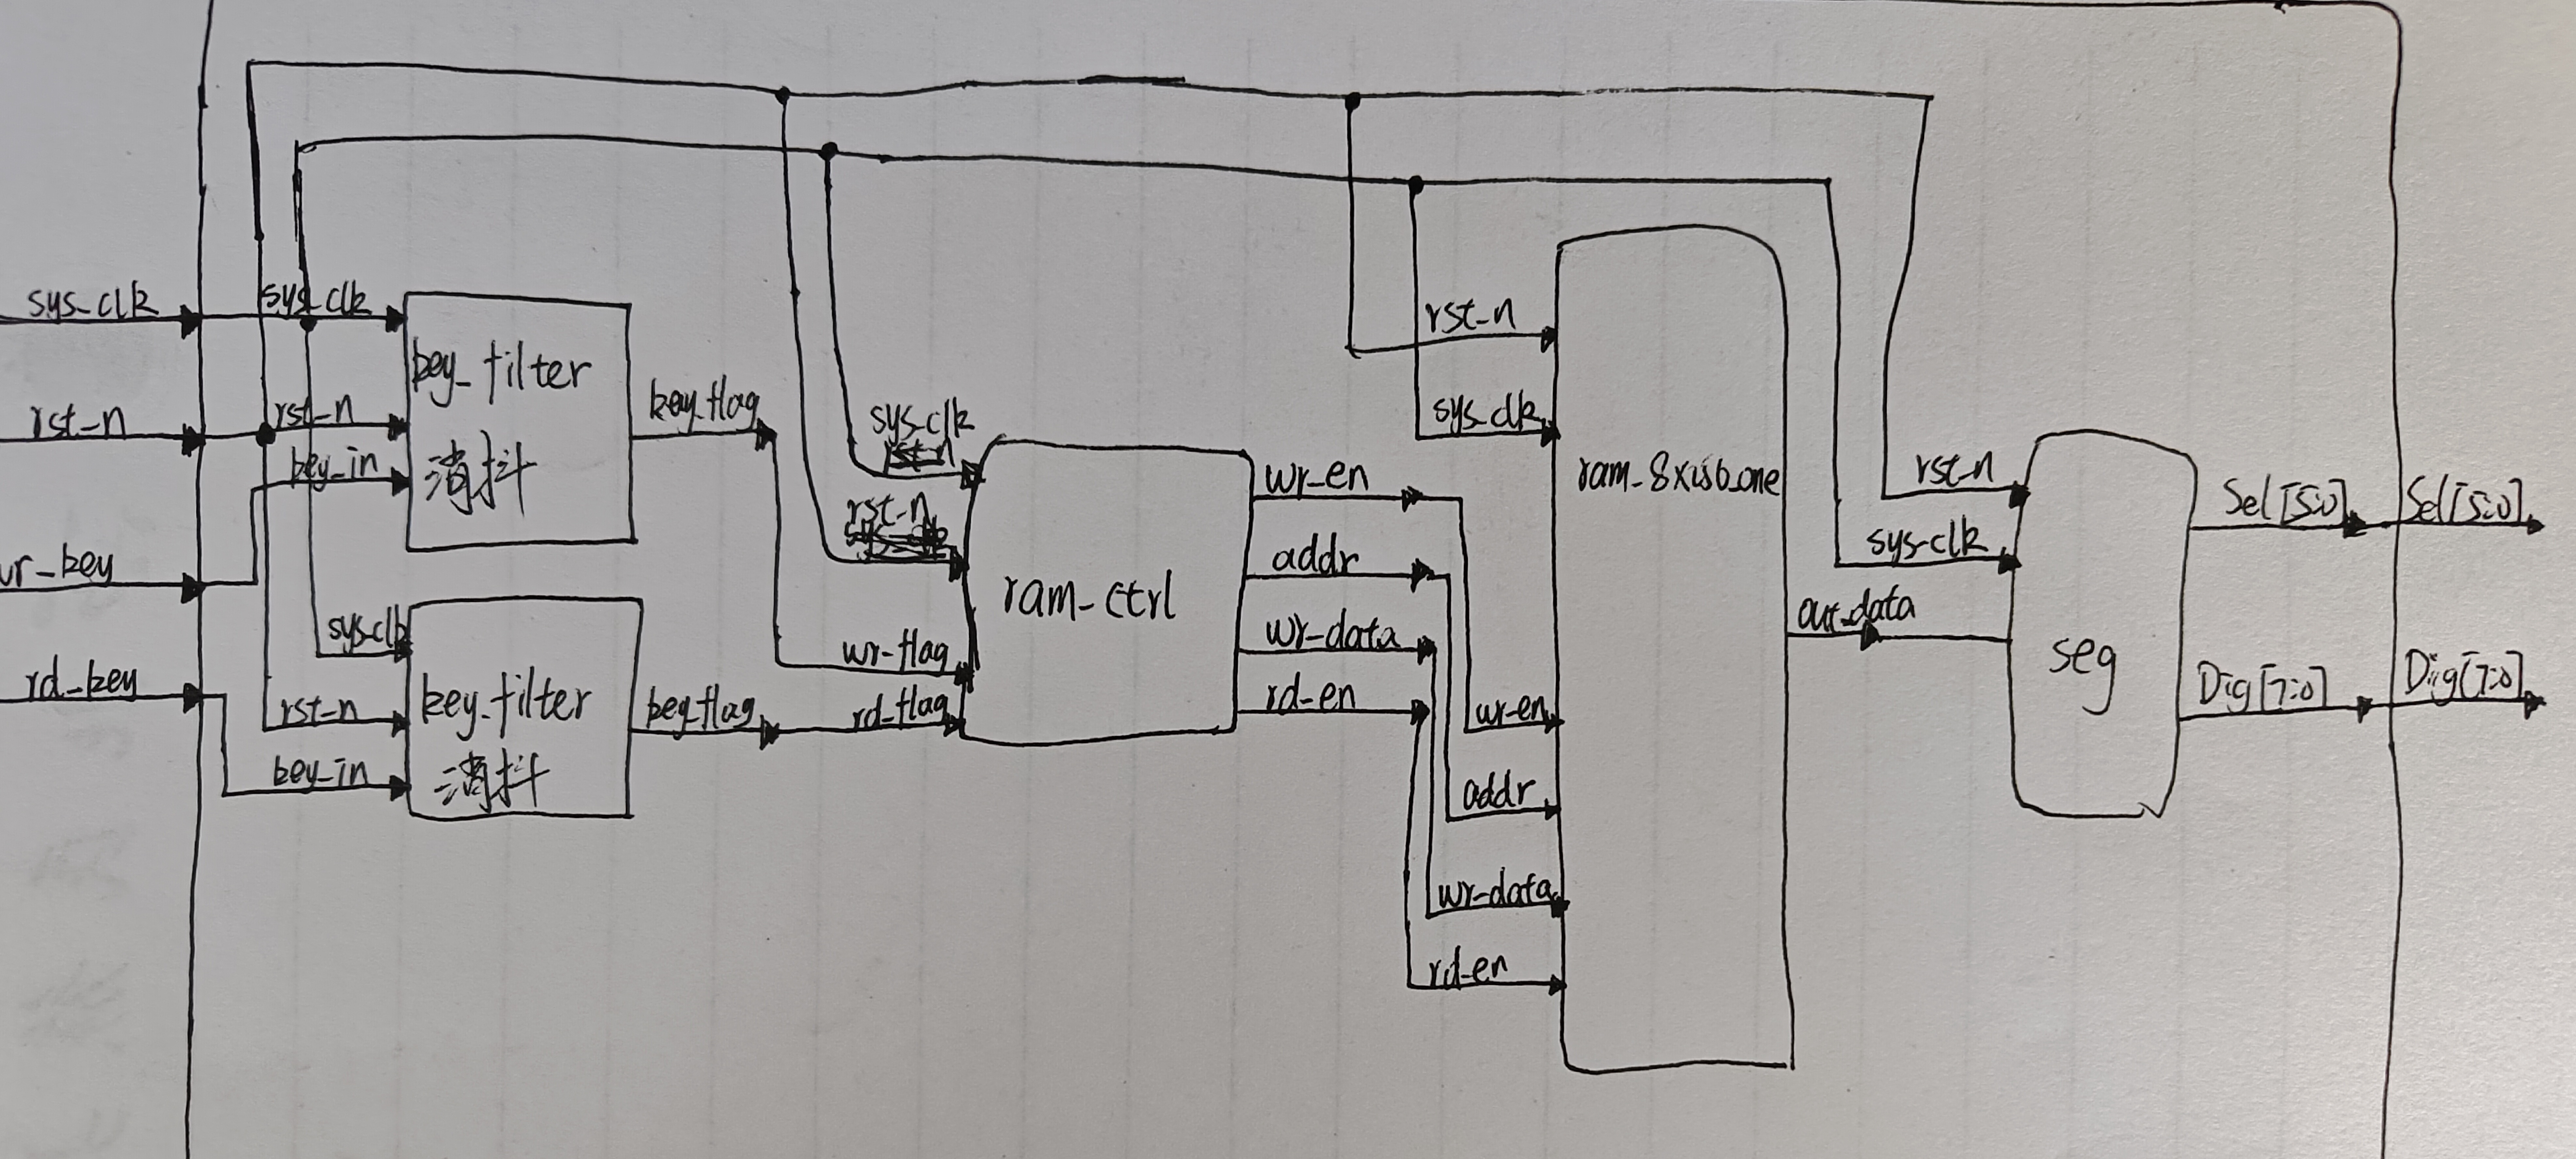 sys_clk
rst_n
wr_key
rd_key
sys_clk
rst_n
key_in
key_filter
消抖
key_flag
sys_clk
rst_n
key_in
key_filter
消抖
key_flag
sys_clk
rst_n
wr_flag
rd_flag
ram_ctrl
wr_en
addr
wr_data
rd_en
rst_n
sys_clk
wr_en
addr
wr_data
rd_en
out_data
rst_n
sys_clk
seg
Sel[5:0]
Dig[7:0]
Sel[5:0]
Dig[7:0]